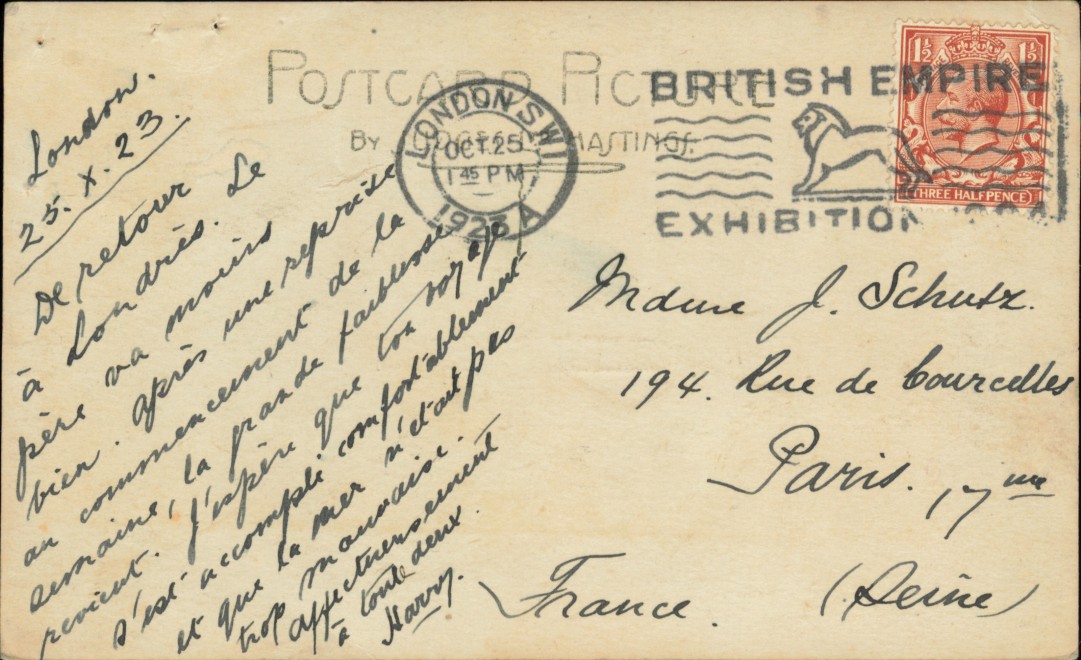 POSTCARD PICTURE
BY HASTINGS.
LONDON. S.W.1
OCT. 25
1 45 PM
1923 A
BRITISH EMPIRE
EXHIBITION
1½ 1½
THREE HALFPENCE
London.
25. X. 23.
De retour
à Londrès. Le
père va moins
bien. après une reprise
au commencement de la
semaine, la grande faiblesse
revient. J'espère que ton voyage
s'est accompli comfortablement
et que la mer n'était pas
trop mauvaise.
affectueusement
à toute deux.
Harry.
Mdme J. Schutz.
194. Rue de Courcelles
Paris. 17me
France. (Seine)